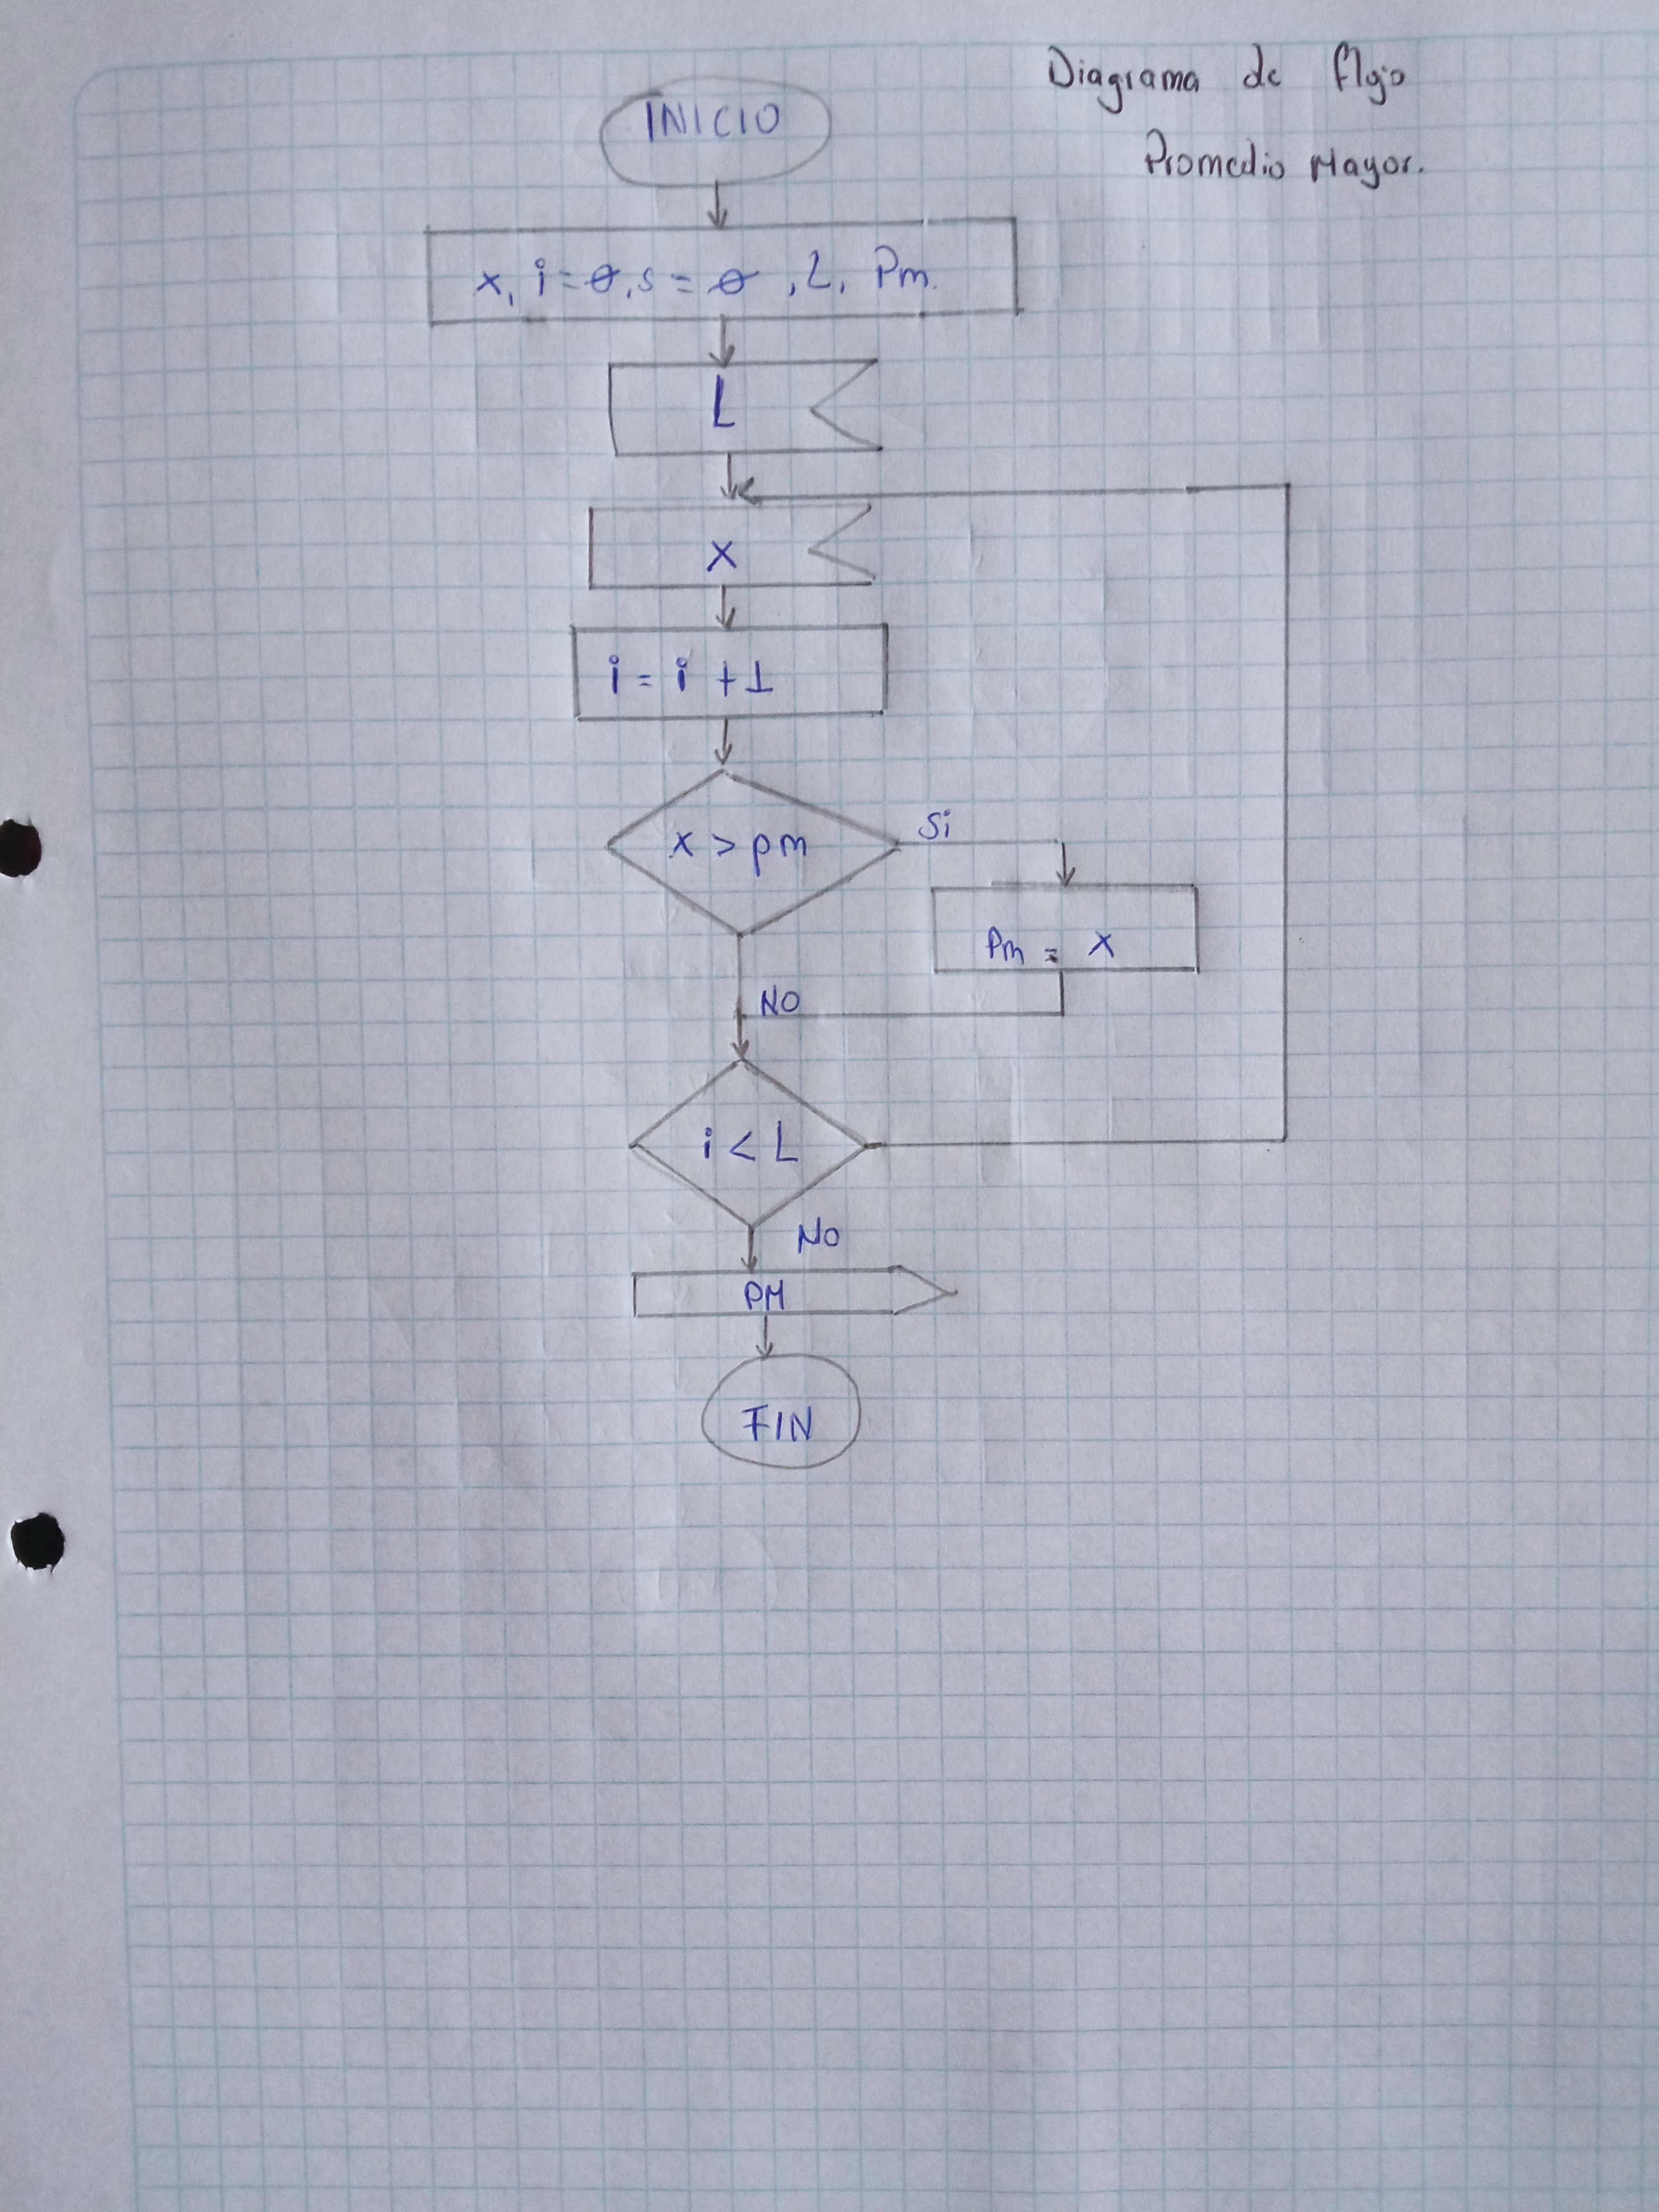 Diagrama de flujo
Promedio Mayor.
INICIO
x, i=0, s=0, L, Pm.
L
x
i = i + 1
x > pm
Si
Pm = x
NO
i < L
No
PM
FIN